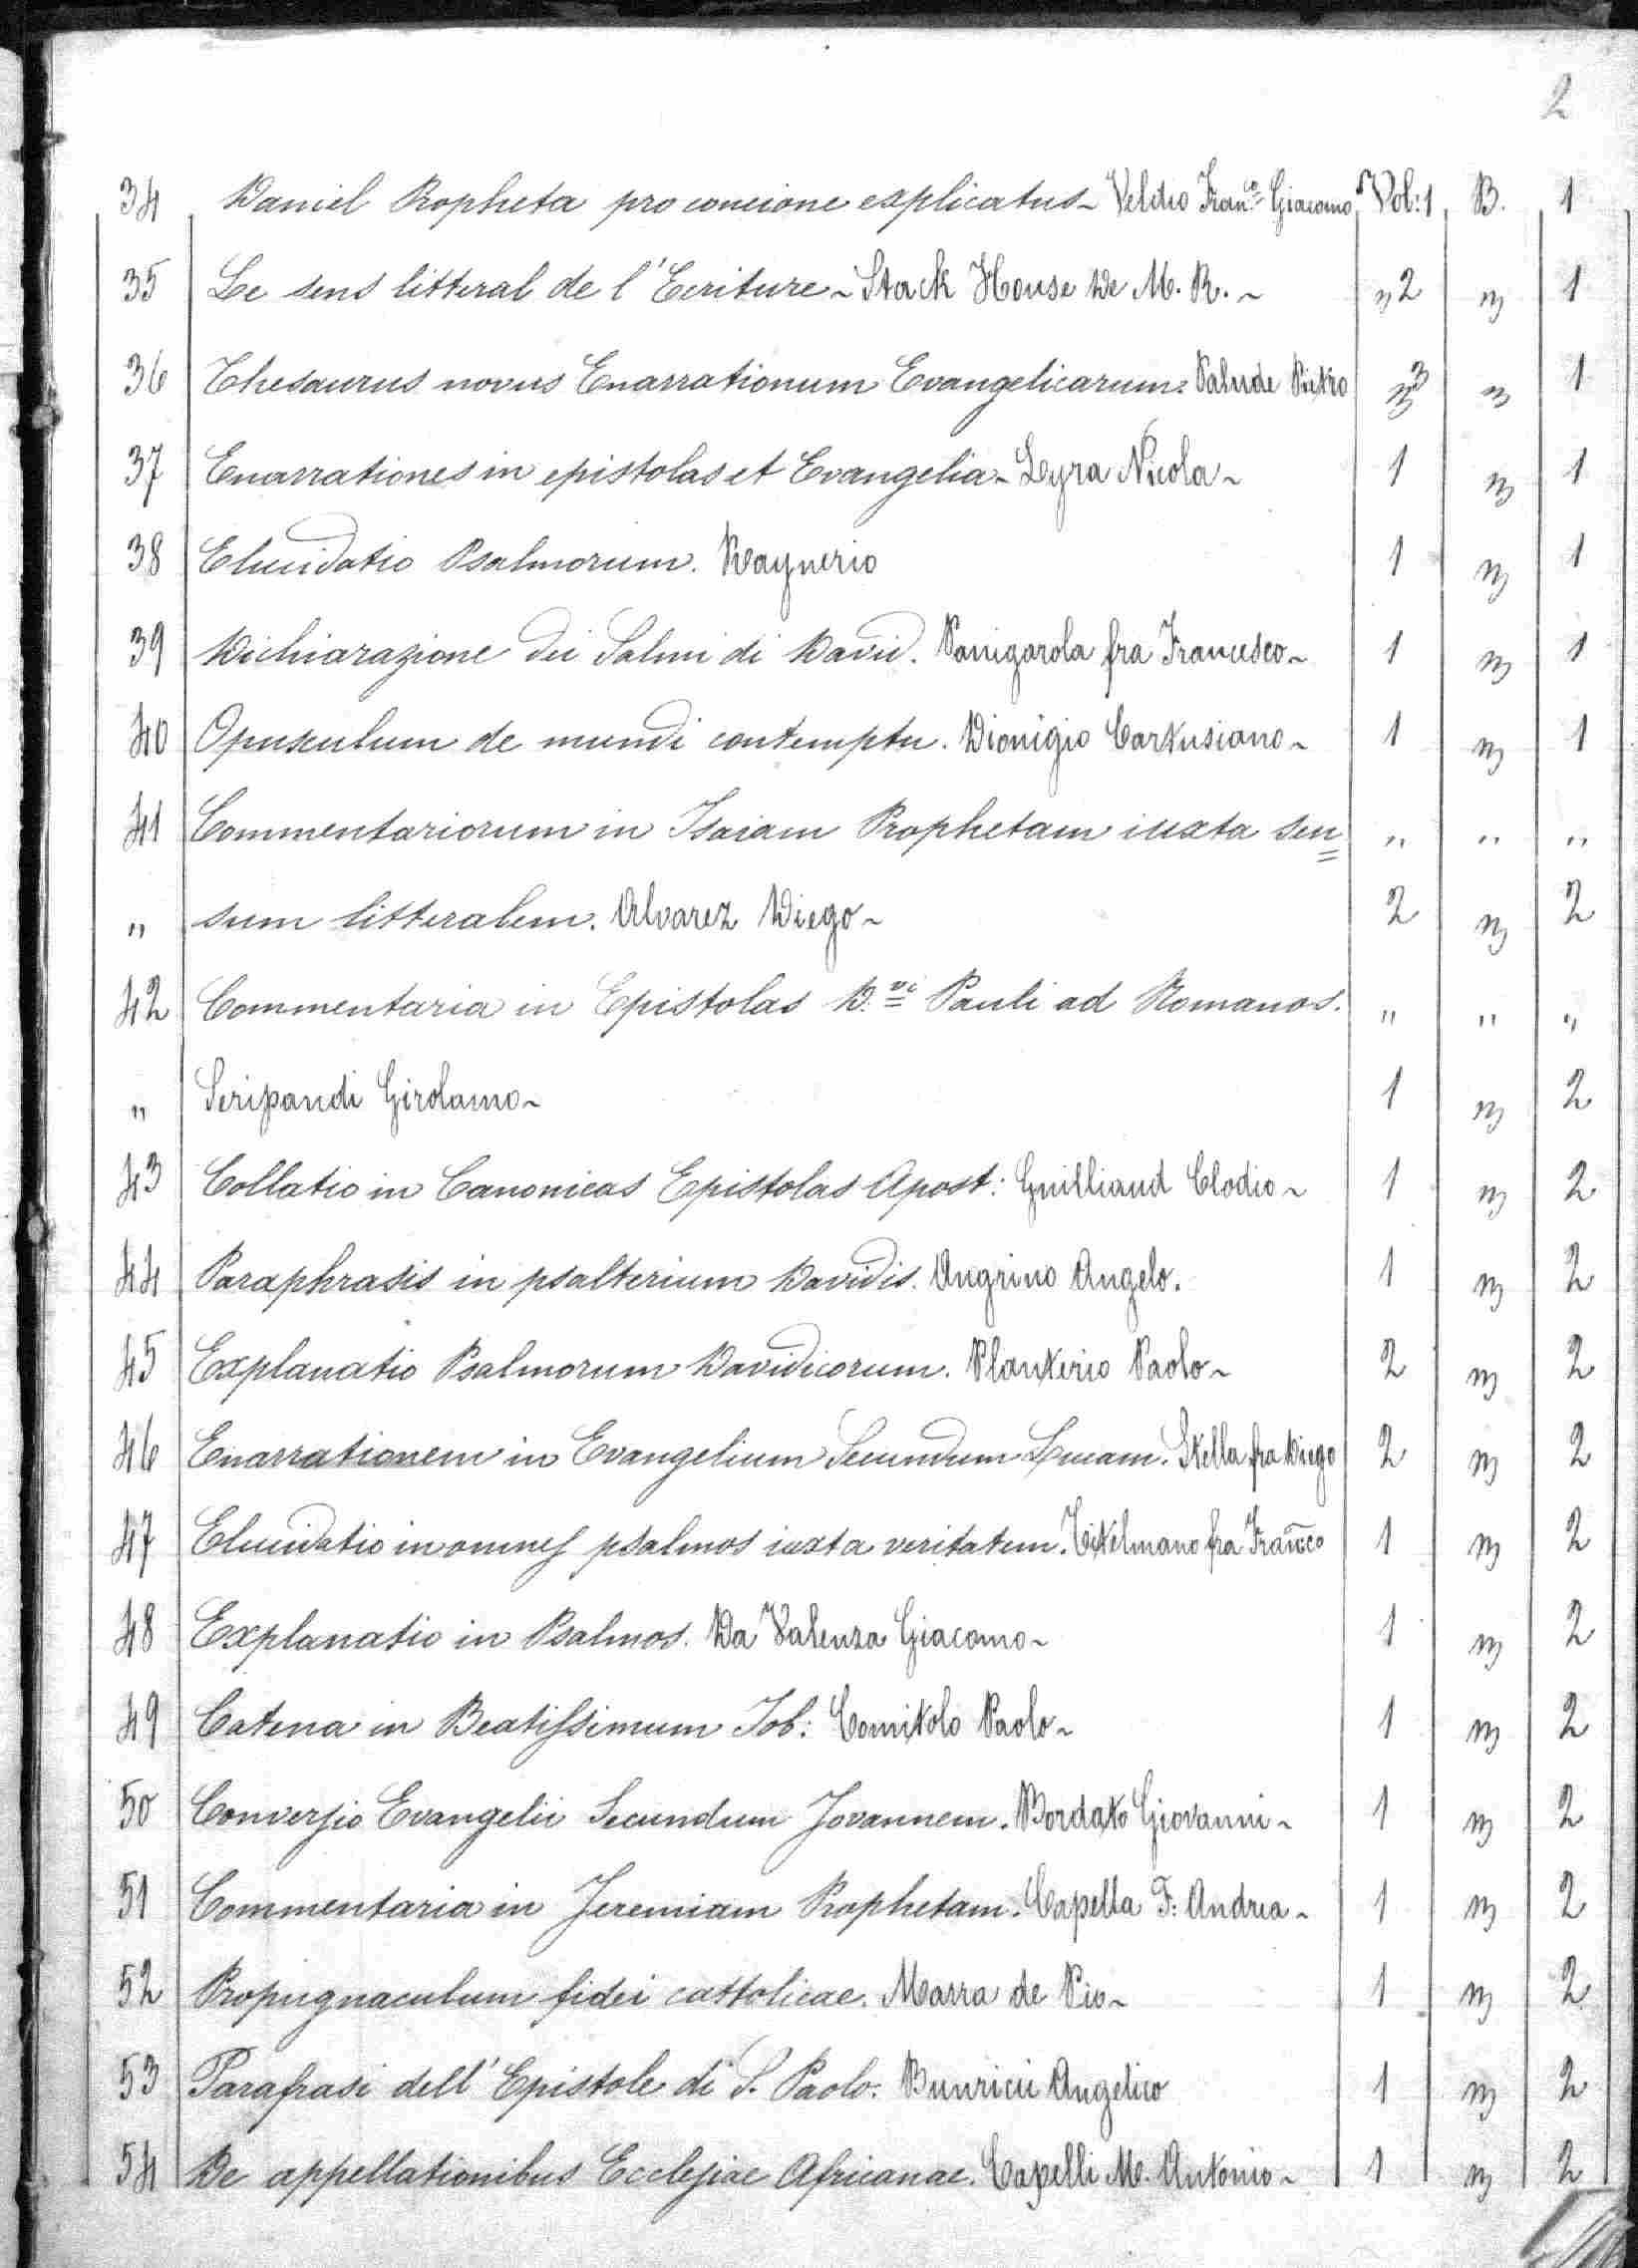 2
34 Daniel Propheta pro concione explicatus ~ Veldio Fran.co Giacomo Vol: 1 B. 1
35 Le sens litteral de l'Ecriture ~ Stack House De M. R. ~ " 2 " 1
36 Thesaurus novus Enarrationum Evangelicarum. Palude Pietro " 3 " 1
37 Enarrationes in epistolas et Evangelia ~ Lyra Nicola ~ 1 " 1
38 Elucidatio Psalmorum. Raynerio 1 " 1
39 Dichiarazione dei Salmi di David. Panigarola fra Francesco ~ 1 " 1
40 Opusculum de mundi contemptu. Dionigio Cartusiano ~ 1 " 1
41 Commentariorum in Isaiam Prophetam iuxta sen= " " "
" sum litteralem. Alvarez Diego ~ 2 " 2
42 Commentaria in Epistolas D.vi Pauli ad Romanos. " " "
" Seripandi Girolamo ~ 1 " 2
43 Collatio in Canonicas Epistolas Apost: Guilliaud Clodio ~ 1 " 2
44 Paraphrasis in psalterium Davidis. Angrino Angelo. 1 " 2
45 Explanatio Psalmorum Davidicorum. Planterio Paolo ~ 2 " 2
46 Enarrationem in Evangelium Secundum Lucam. Stella fra Diego 2 " 2
47 Elucidatio in omnes psalmos iuxta veritatem. Titelmano fra Franco 1 " 2
48 Explanatio in Psalmos. Da Valenza Giacomo ~ 1 " 2
49 Catena in Beatissimum Iob: Comitolo Paolo ~ 1 " 2
50 Conversio Evangelii Secundum Jovannem. Bordato Giovanni ~ 1 " 2
51 Commentaria in Jeremiam Prophetam. Capella F: Andrea ~ 1 " 2
52 Propugnaculum fidei cattolicae. Marra de Pio ~ 1 " 2
53 Parafrasi dell'Epistole di S. Paolo. Bunricii Angelico 1 " 2
54 De appellationibus Ecclesiae Africanae. Capelli M. Antonio ~ 1 " 2